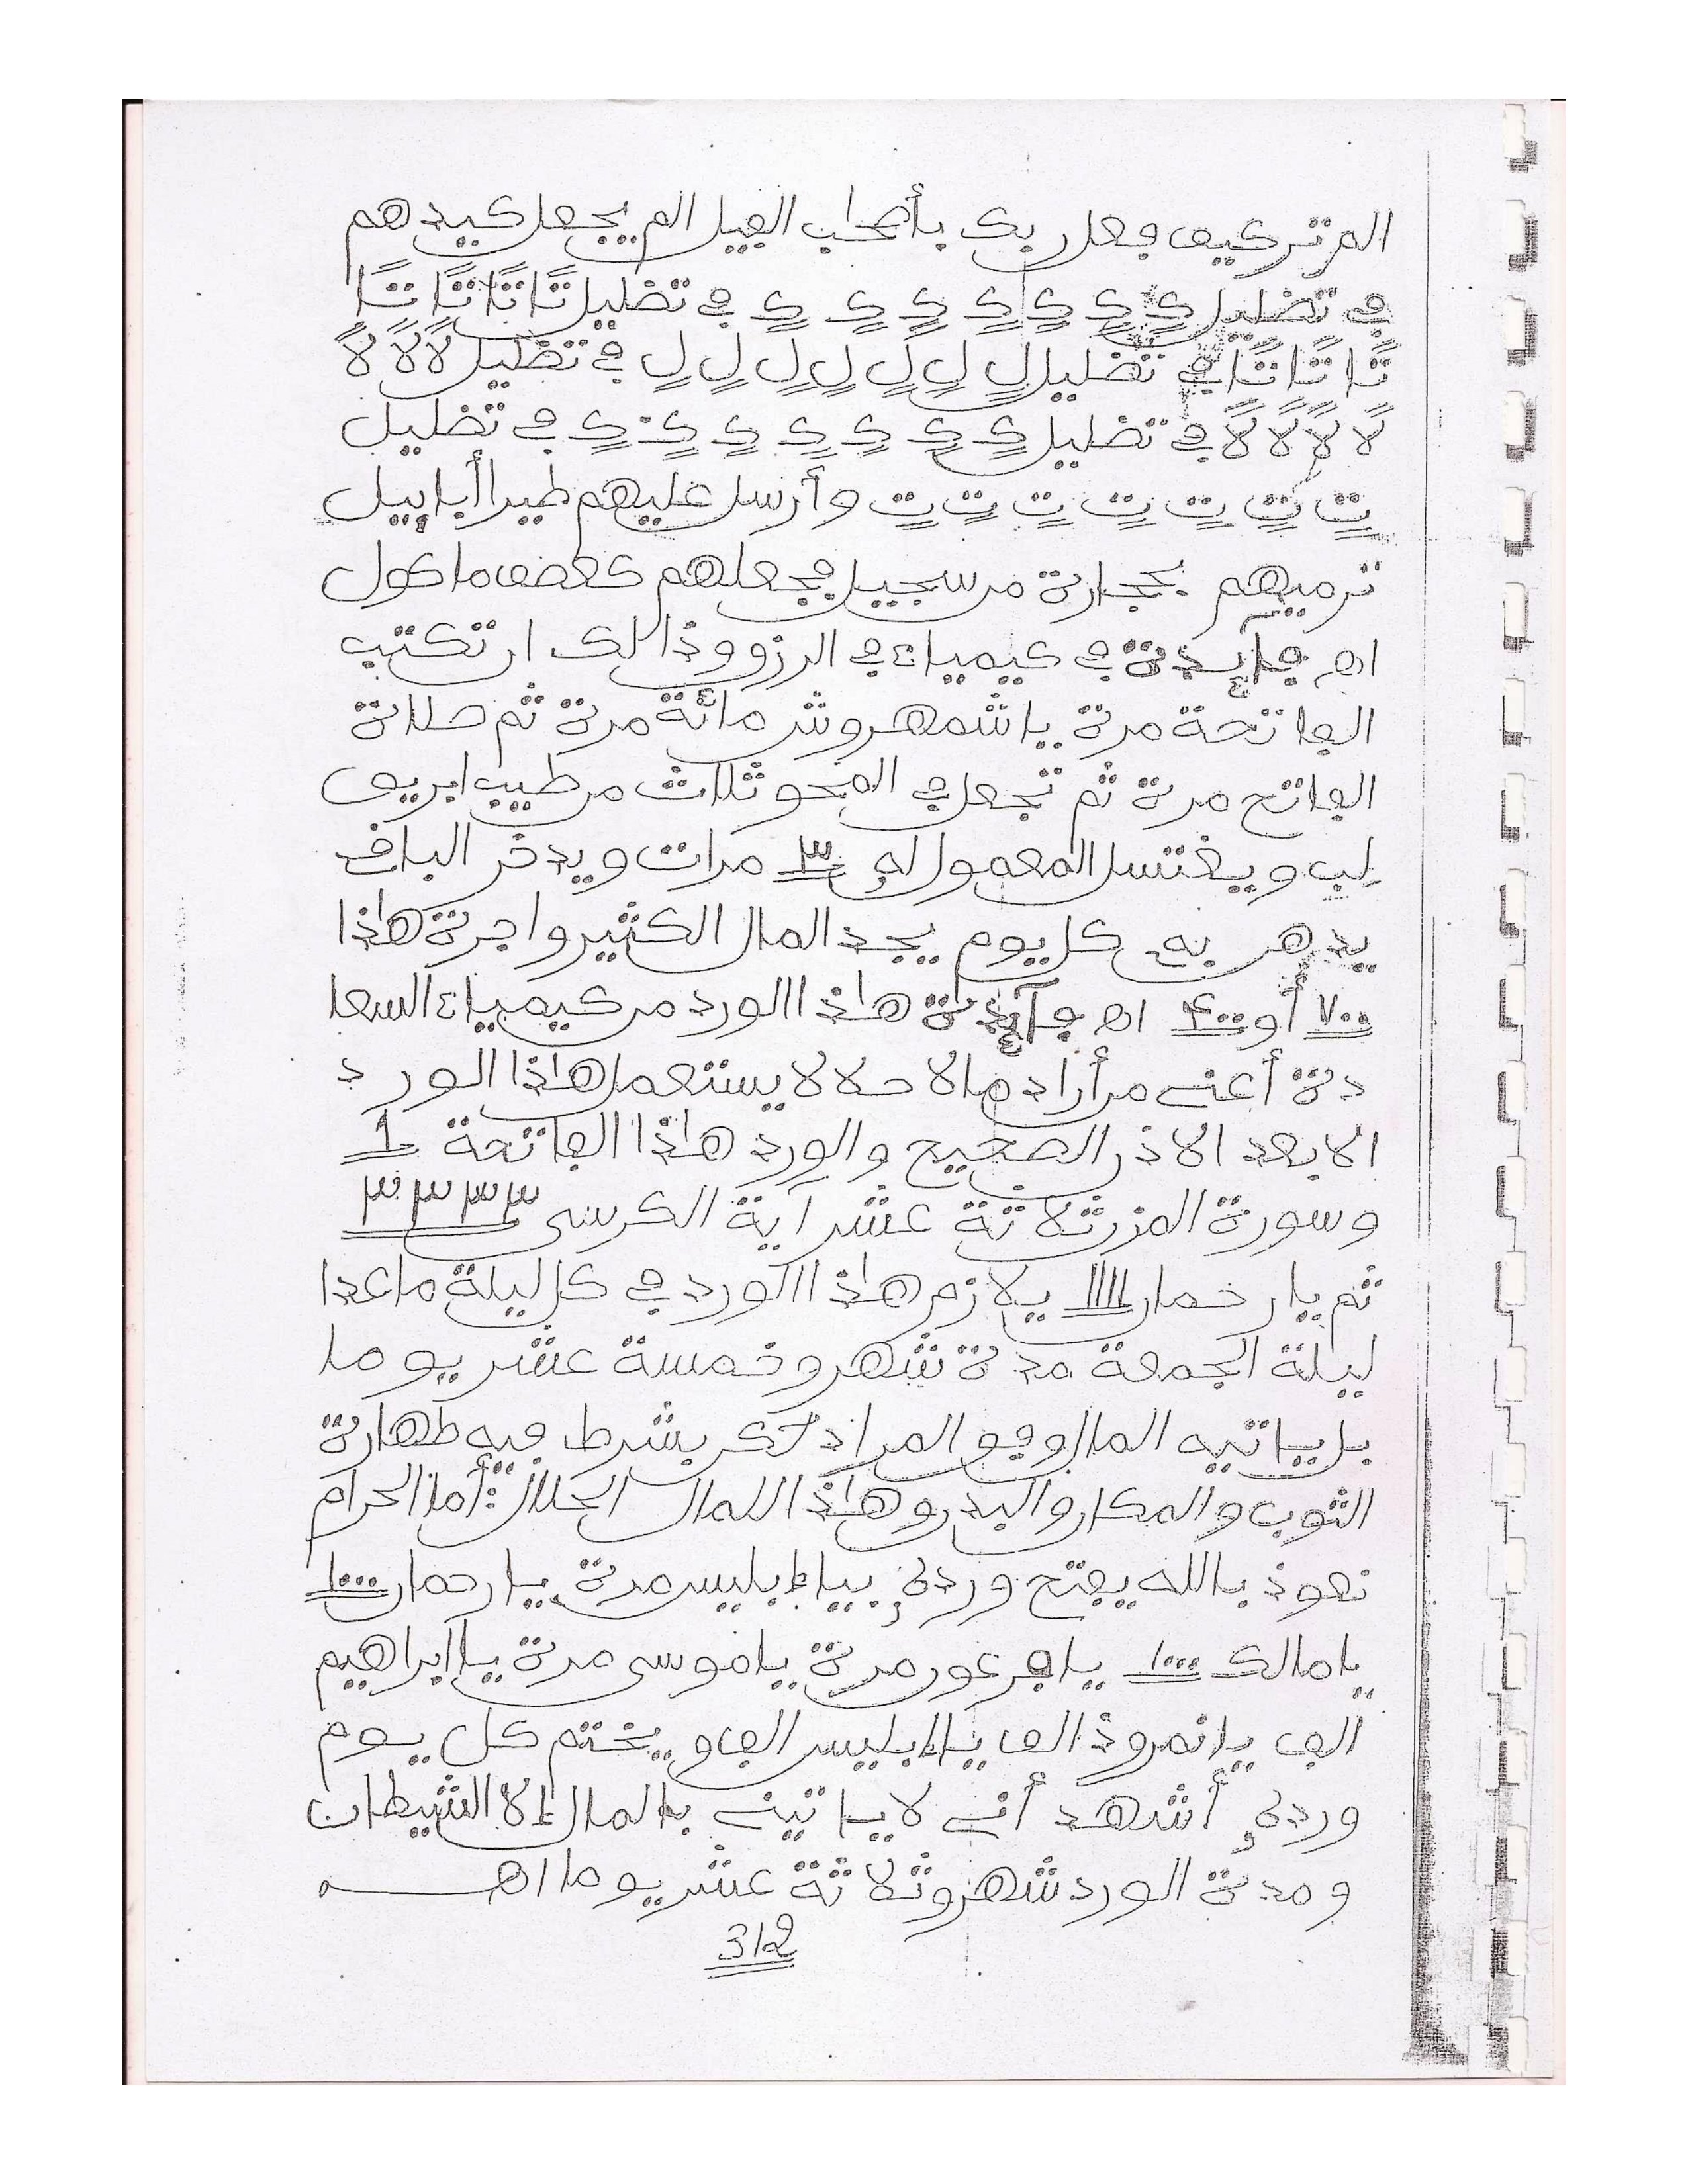 الم تر كيف فعل ربك بأصحاب الفيل الم يجعل كيدهم
في تضليل كٍ كٍ كٍ كٍ كٍ كٍ كٍ في تضليل تًا تًا تًا تًا
تًا تًا تًا في تضليل لٍ لٍ لٍ لٍ لٍ لٍ لٍ في تضليل لًا لًا لًا
لًا لًا لًا لًا في تضليل كٍ كٍ كٍ كٍ كٍ كٍ كٍ في تضليل
تٍ تٍ تٍ تٍ تٍ تٍ تٍ وأرسل عليهم طيرا أبابيل
ترميهم بحجارة من سجيل فجعلهم كعصف ماكول
اه فآيدة في كيمياء في الرزق وذالك ان تكتب
الفاتحة مرة يا شمهروش مائة مرة ثم صلاة
الفاتح مرة ثم تجعل في المحو ثلاث من طيب ابريق
لب ويغتسل المعمول له ٣ مرات ويدخر الباق
يدهن به كل يوم يجد المال الكثير واجرة هاذا
٧٠٠ أو ٤٠٠ اه فآيدة هاذا الورد من كيمياء السعا
دة أعني من أراد مالا حلالا يستعمل هاذا الورد
الا بعد الاذن الصحيح والورد هاذا الفاتحة 1
وسورة المزن ثلاثة عشر آية الكرسى ٣٣٣٣
ثم يا رحمان ١١١١ يلازم هاذا الورد في كل ليلة ماعدا
ليلة الجمعة مدة شهر وخمسة عشر يوما
بل ياتيه المال وفق المراد لكن بشرط فيه طهارة
الثوب والمكان والبدن وهاذا المال الحلال أما الحرام
نعوذ بالله يفتح ورده بيا إبليس مرة يا رحمان ١٠٠٠
يا مالك ١٠٠٠ يا فرعون مرة يا موسى مرة يا ابراهيم
الف يا نمروذ الف يا إبليس الف ويختم كل يوم
ورده أشهد أني لا ياتيني بالمال إلا الشيطان
ومدة الورد شهر وثلاثة عشر يوما اهـ
312